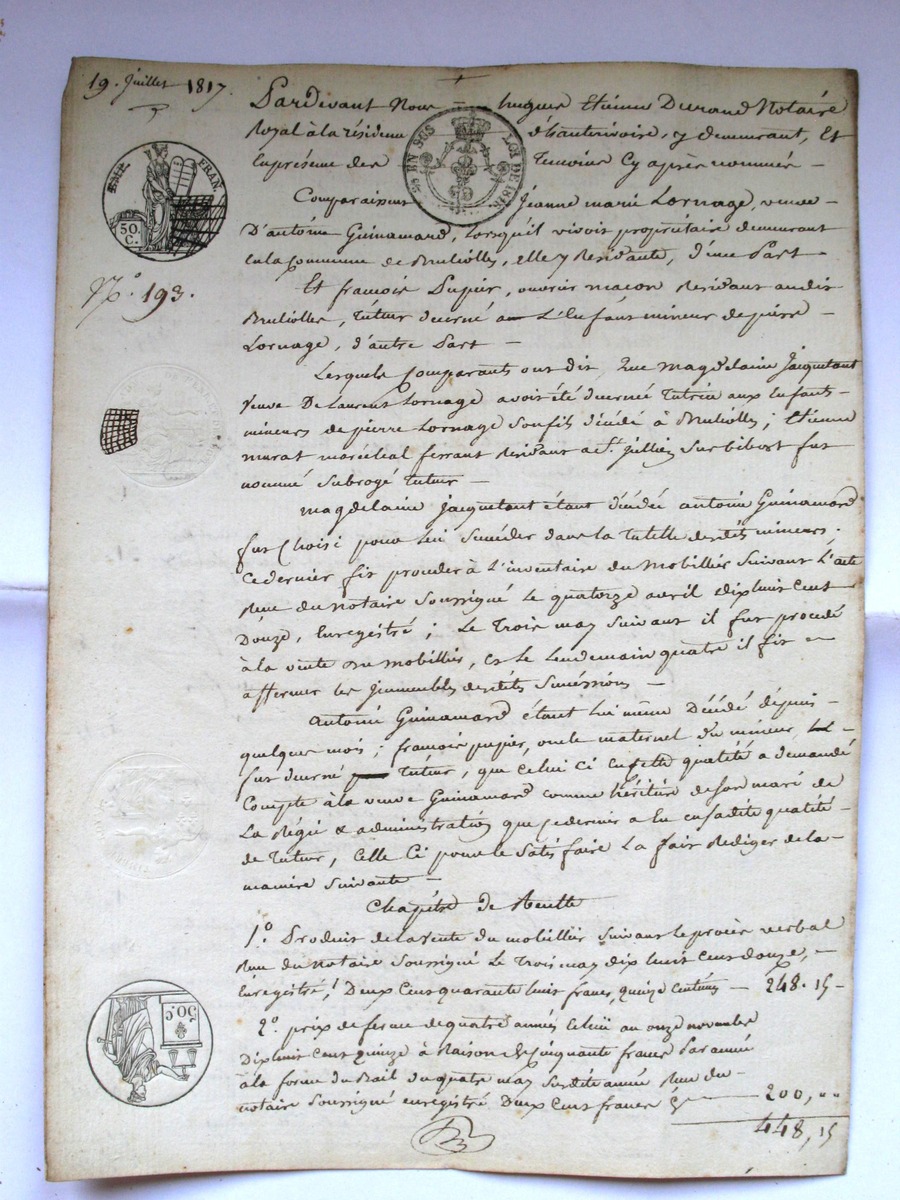 19. Juillet 1817.
Pardevant Nous hugues Etienne Durand Notaire
Royal à la résidence d'hauterivoire, y demeurant, Et
En présence des Temoins Cy après nommés
EN SUS LOI DE 1816
EME FRAN.
50. C.
Comparaissent Jeanne marie Lornage, veuve
D'antoine Guinamard, lorsqu'il vivoit propriétaire demeurant
en la Commune de Brulioles, elle y Residante, d'une Part
N.o 193.
Et francois Pupier, ouvrier maçon Residant audit
Brulioles, Tuteur decerné a L'Enfant mineur de pierre
Lornage, d'autre Part
Lesquels Comparants ont dit, Que magdelaine Jaquetant
veuve De Laurent Lornage avoit été decernée Tutrice aux Enfants
mineurs de pierre Lornage son fils décédé à Brulioles; Etienne
murat maréchal ferrant Residant a St. Jullien sur bibost fut
nommé Subrogé Tuteur
magdelaine Jaquetant étant décédée antoine Guinamard
fut Choisi pour Lui Succéder dans la Tutelle desdits mineurs.
Ce dernier fit proceder à L'inventaire du Mobillier Suivant L'acte
Reçu du Notaire Soussigné Le quatorze avril dix huit Cent
Douze, Enregistré; Le Trois may Suivant il fut procédé
à la vente du mobillier, et Le Lendemain quatre il fit
affermer les Immeubles desdites Successions
antoine Guinamard étant Lui même Décédé depuis
quelques mois; francois pupier, oncle maternel du mineur,
fut decerné Tuteur, que celui ci en cette qualité a demandé
Compte à la veuve Guinamard comme héritière de son mari de
La Régie & administration que Ce dernier a Eu en sadite qualité
de Tuteur, Celle Ci pour le Satisfaire La fait Rediger de la
maniere Suivante
Chapitre de Recette
1.o Produit de la vente du mobillier Suivant le procès verbal
Reçu du Notaire Soussigné Le Trois may dix huit Cent douze,
Enregistré, Deux Cent quarante huit francs, quinze Centimes 248.15
2.o prix de ferme de quatre années Echue au onze novembre
Dix huit Cent quinze à Raison de Cinquante francs Par année
à la forme du Bail du quatre may Susdite année Reçu du
notaire Soussigné enregistré Deux Cent francs 200,
448,15
50 c.